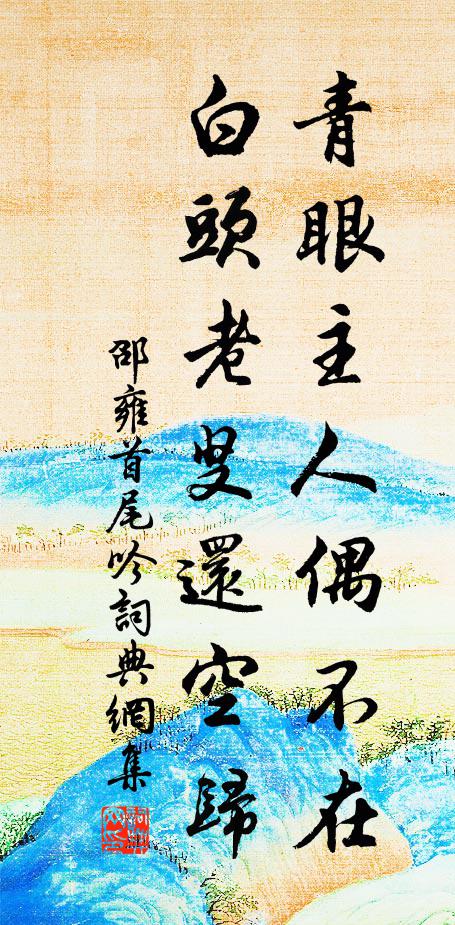 青眼主人偶不在
白頭老叟還空歸
邵雍首尾吟詞典網集